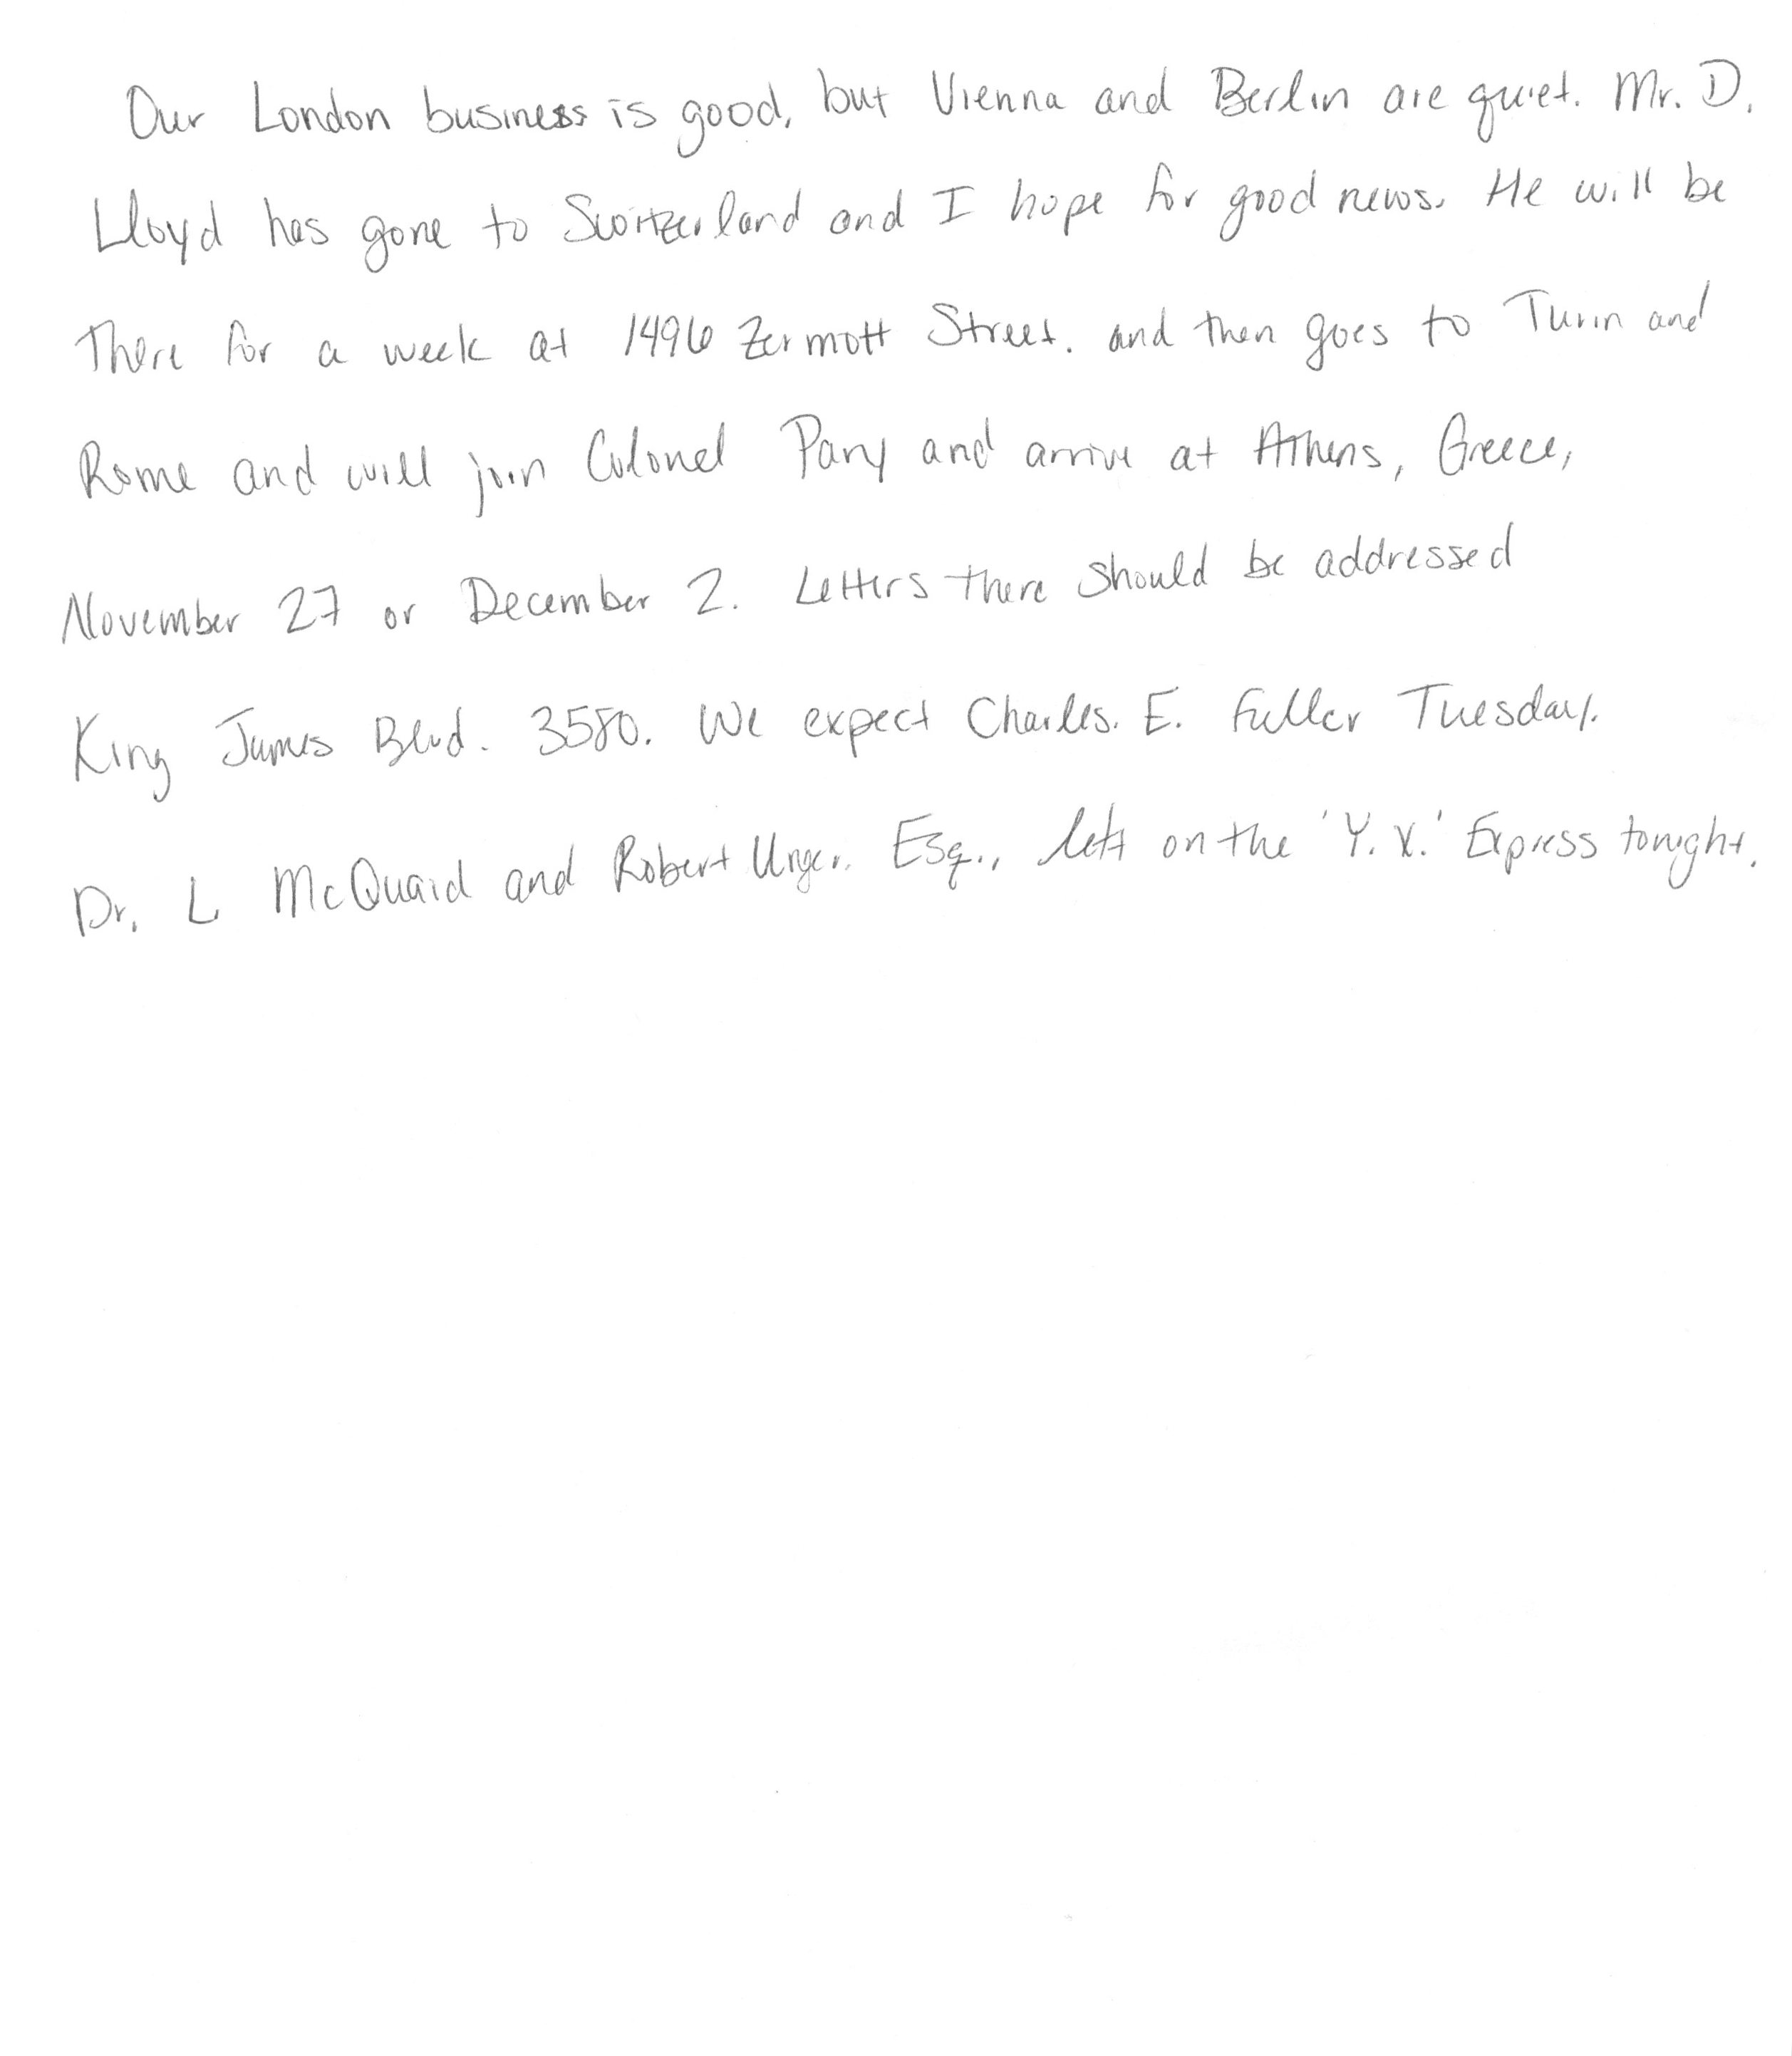 Our London business is good, but Vienna and Berlin are quiet. Mr. D.
Lloyd has gone to Switzerland and I hope for good news. He will be
there for a week at 1496 Zermott Street. and then goes to Turin and
Rome and will join Colonel Parry and arrive at Athens, Greece,
November 27 or December 2. Letters there should be addressed
King James Blvd. 3580. We expect Charles. E. Fuller Tuesday.
Dr. L McQuaid and Robert Unger. Esq., left on the 'Y.X.' Express tonight.